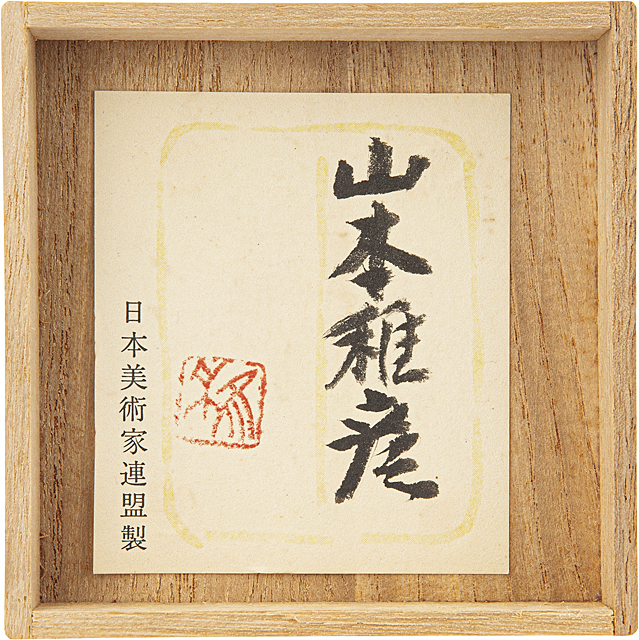 山本稚彦
日本美術家連盟製